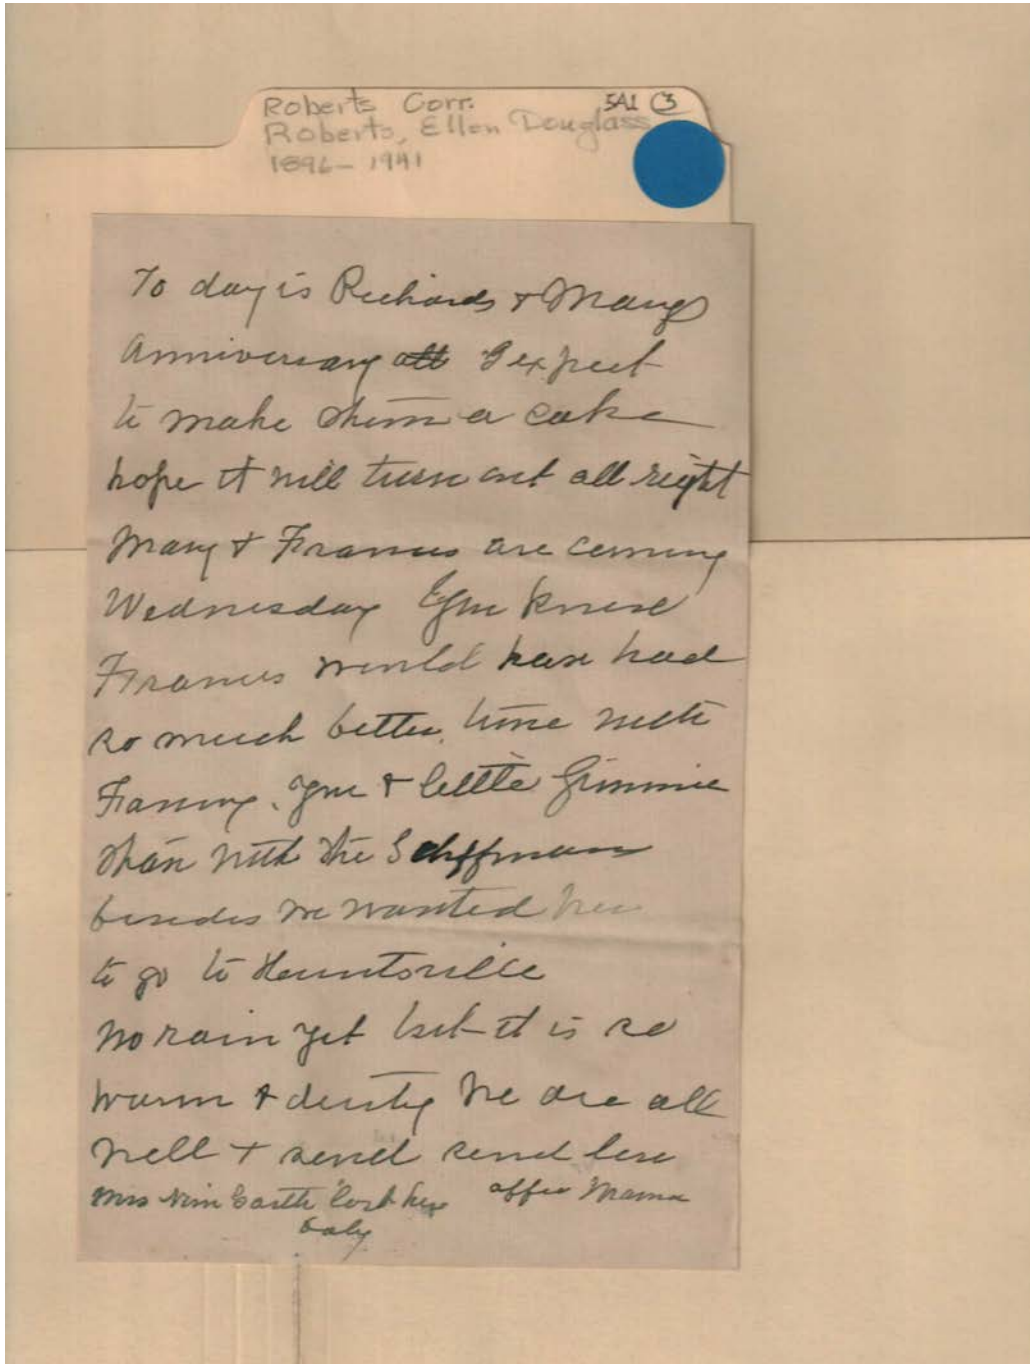 Roberts Corr. 5A1 (3)
Roberts, Ellen Douglass
1896 - 1941
To day is Richards & Marys
Anniversary I expect
to make them a cake
hope it will turn out all right
Mary & Frances are coming
Wednesday You know
Frances would have had
so much better time with
Fanny, you & little Jimmie
than with the Schiffmans
besides we wanted her
to go to Huntsville
No rain yet but it is so
warm & dusty We are all
well & send send love
Mrs Garth lost her affec Mama
baby